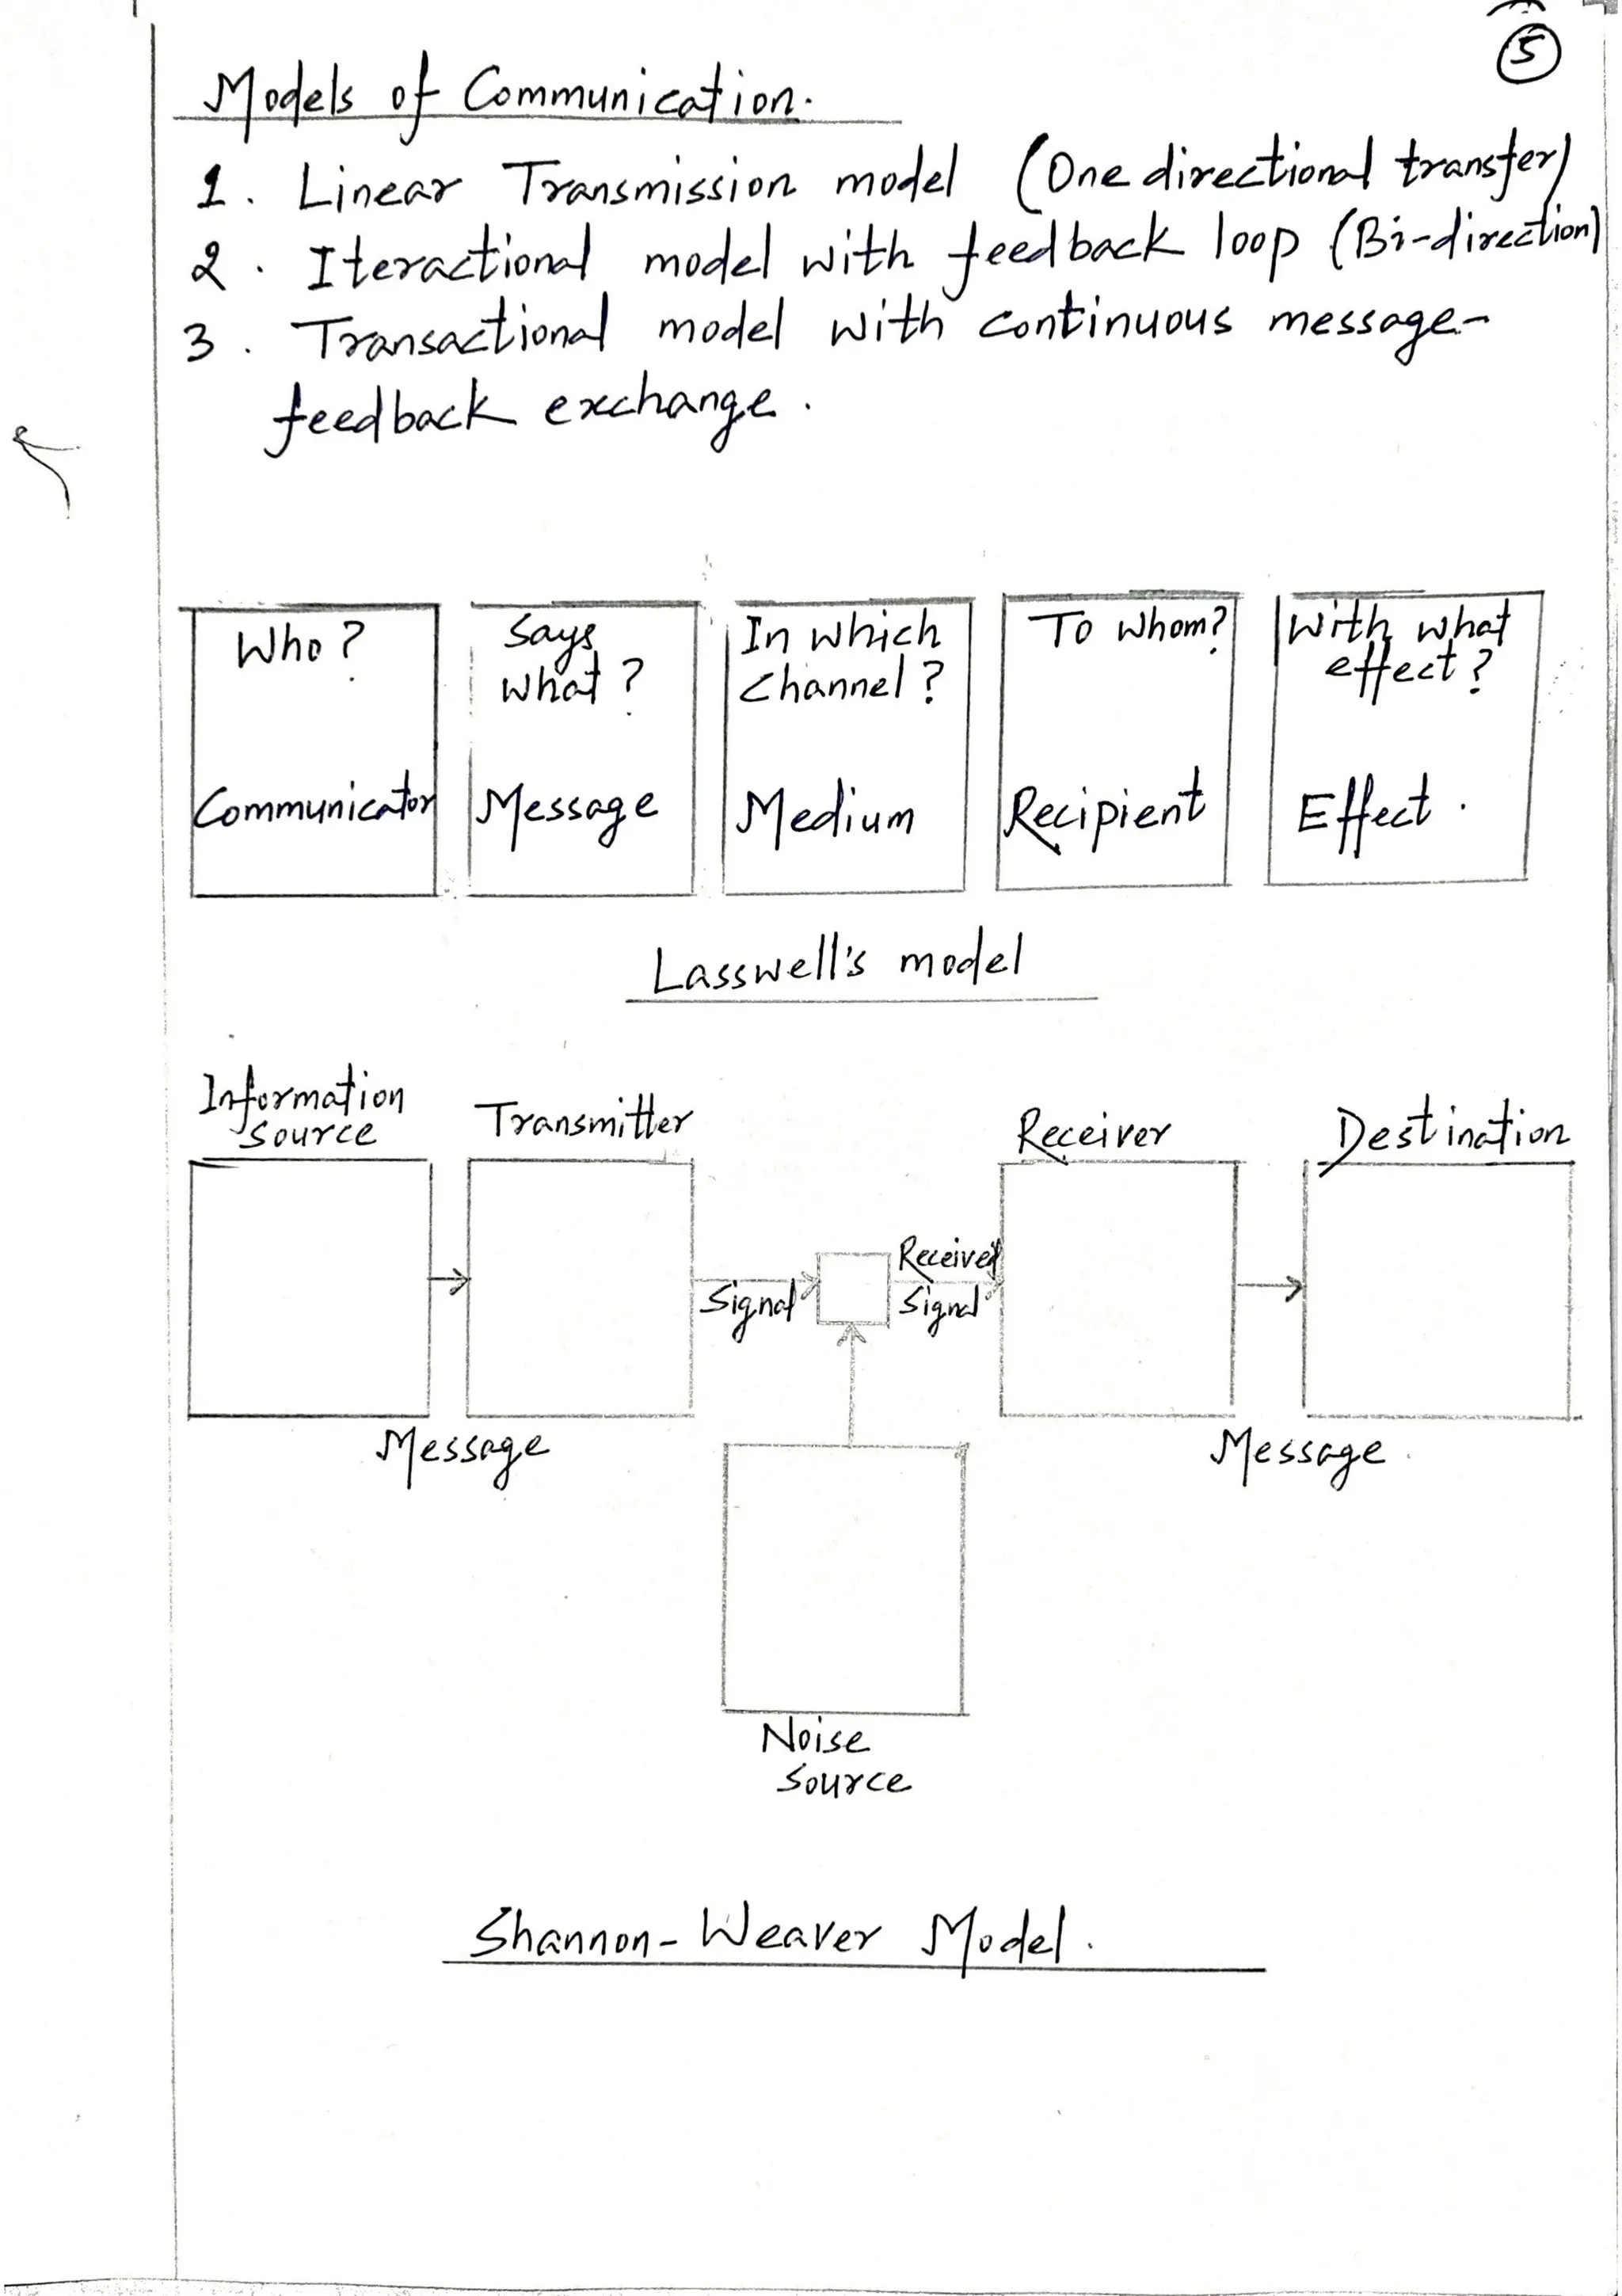 5
Models of Communication.
1. Linear Transmission model (One directional transfer)
2. Iteractional model with feedback loop (Bi-direction)
3. Transactional model with continuous message-
feedback exchange.
Who?
Communicator
Says
what?
Message
In which
channel?
Medium
To whom?
Recipient
With what
effect?
Effect.
Lasswell's model
Information
source
Transmitter
Receiver
Destination
Signal
Received
Signal
Message
Message
Noise
source
Shannon-Weaver Model.